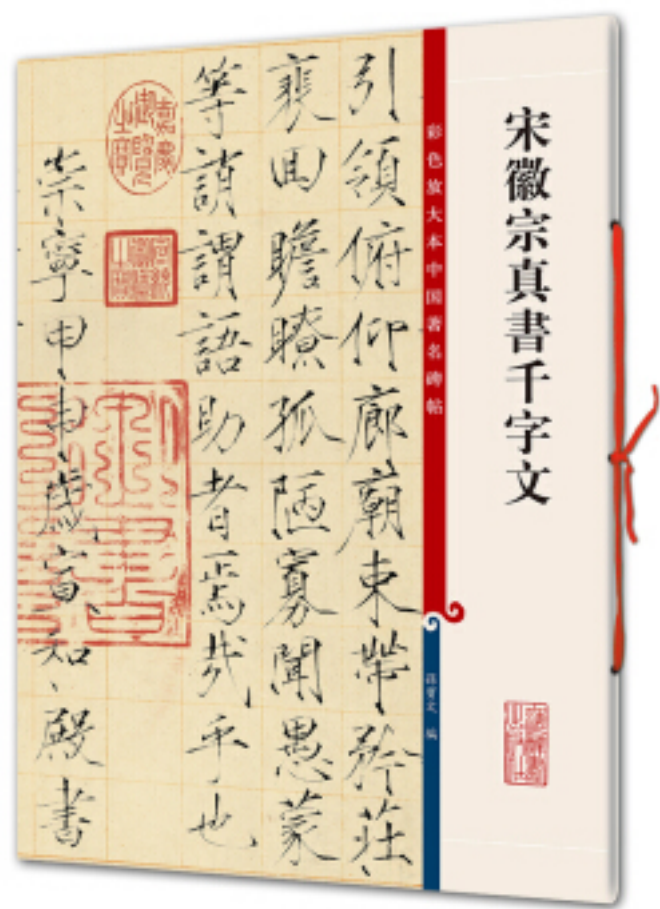 宋徽宗真書千字文
彩色放大本中国著名碑帖
孫寳文 编
引領俯仰廊廟束帶矜莊
裵回瞻瞭孤陋寡聞愚蒙
等誚謂語助者焉哉乎也
崇寧甲申歲宣和殿書
嘉慶御覽之寶